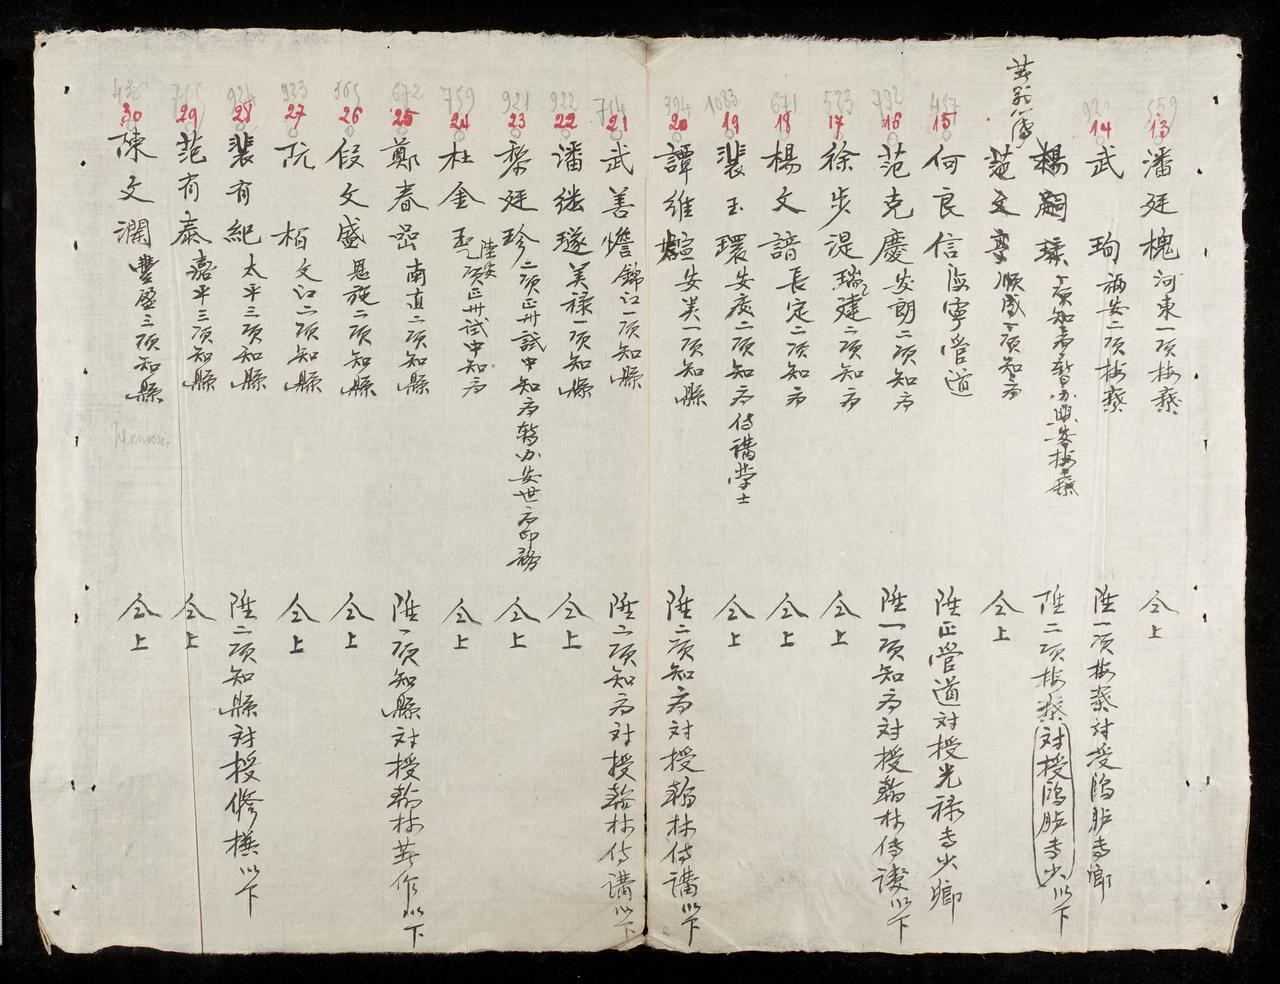 559
13
潘廷槐 河東一項按察 仝上
14
武珣 福安二項按察 陞一項按察対授鴻胪寺卿
楊嗣 項知府暫办興安按察 陞二項按察対授鴻胪寺少以下
范文 順成項知府 仝上
457
15
何良信 海寧管道 陞正管道対授光禄寺少卿
792
16
范克慶 安朗二項知府 陞一項知府対授翰林侍讀以下
533
17
徐步湜 瑞建二項知府 仝上
671
18
楊文諳 長定二項知府 仝上
1083
19
裴玉環 安慶二項知府侍講學士 仝上
394
20
譚維 安类一項知縣 陞二項知府対授翰林侍講以下
714
21
武善 錦江一項知縣 陞二項知府対授翰林侍講以下
922
22
潘継璲 美禄一項知縣 仝上
921
23
黎廷珍 二項正卅試中知府暫办安世府印務 仝上
759
24
杜金 陸安項正卅試中知府 仝上
672
25
鄭春 南直二項知縣 陞一項知縣対授翰林著作以下
365
26
段文盛 恩施二項知縣 仝上
923
27
阮栢 文江二項知縣 仝上
924
28
裴有紀 太平三項知縣 陞二項知縣対授修撰以下
29
范有泰 嘉平三項知縣 仝上
30
陳文瀾 豊盈三項知縣 仝上